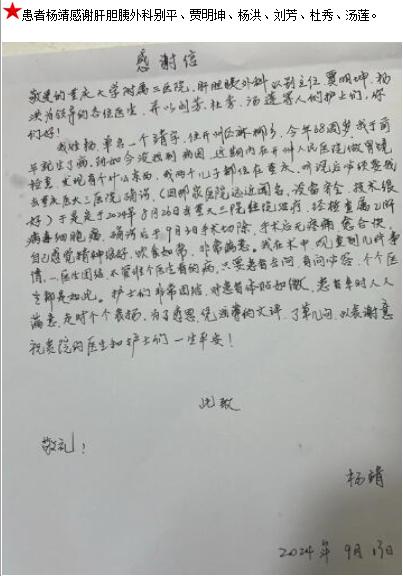 ★患者杨靖感谢肝胆胰外科别平、贾明坤、杨洪、刘芳、杜秀、汤莲。
感谢信
敬爱的重庆大学附属三医院，肝胆胰外科以别主任 贾明坤、杨
洪为领导的各位医生，并以刘芳、杜秀、汤莲等人的护士们，你
们好！
我姓杨，单名一个靖字，住开州区麻柳乡，今年68周岁 我于前
检查，发现有个叶 东西，我两个儿子都住在重庆，听说后必须要我
去重庆医大三医院确诊，（因那家医院远近闻名，设备齐全 技术很
好）于是定于2024年8月26日去重大三院住院治疗，经检查属乙肝
病毒细胞癌，确诊后于9月3日手术切除，手术后无疼痛 愈合快，
自己感觉精神很好，饮食如常，非常满意。我在术中 观查到几件事
情，一医生团结，不管那个医生看的病，只要患者去问 有问必答，个个医
生都是如此。护士们非常团结，对患者体贴如微，患者年时人人
满意，走时个个表扬，为了感恩，
祝贵院的医生和护士们一生平安！
此致
敬礼！
杨靖
2024年9月13日